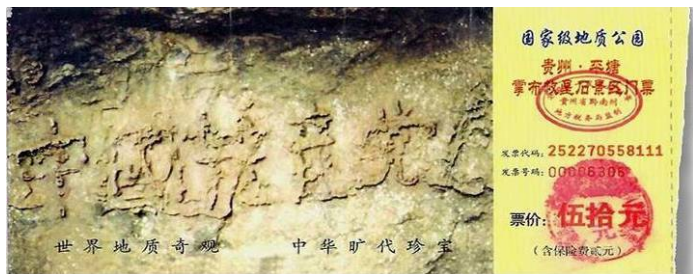 中國共产党亡
世界地质奇观 中华旷代珍宝
国家级地质公园
贵州·平塘
掌布救星石景区门票
贵州省黔南州
地方税务局监制
发票代码：252270558111
发票号码：
票价：伍拾元
（含保险费贰元）